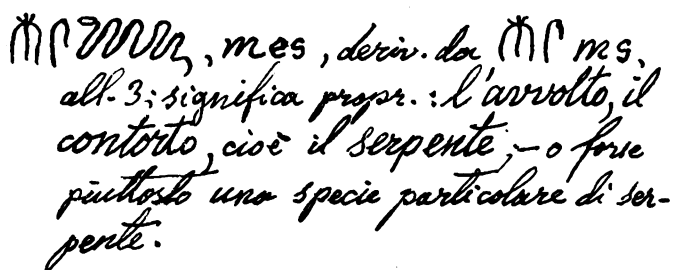 𓄟𓋴𓆙, mes, deriv. da 𓄟𓋴 ms,
all. 3; significa propr.: l'avvolto, il
contorto, cioè il serpente; – o forse
piuttosto una specie particolare di ser-
pente.